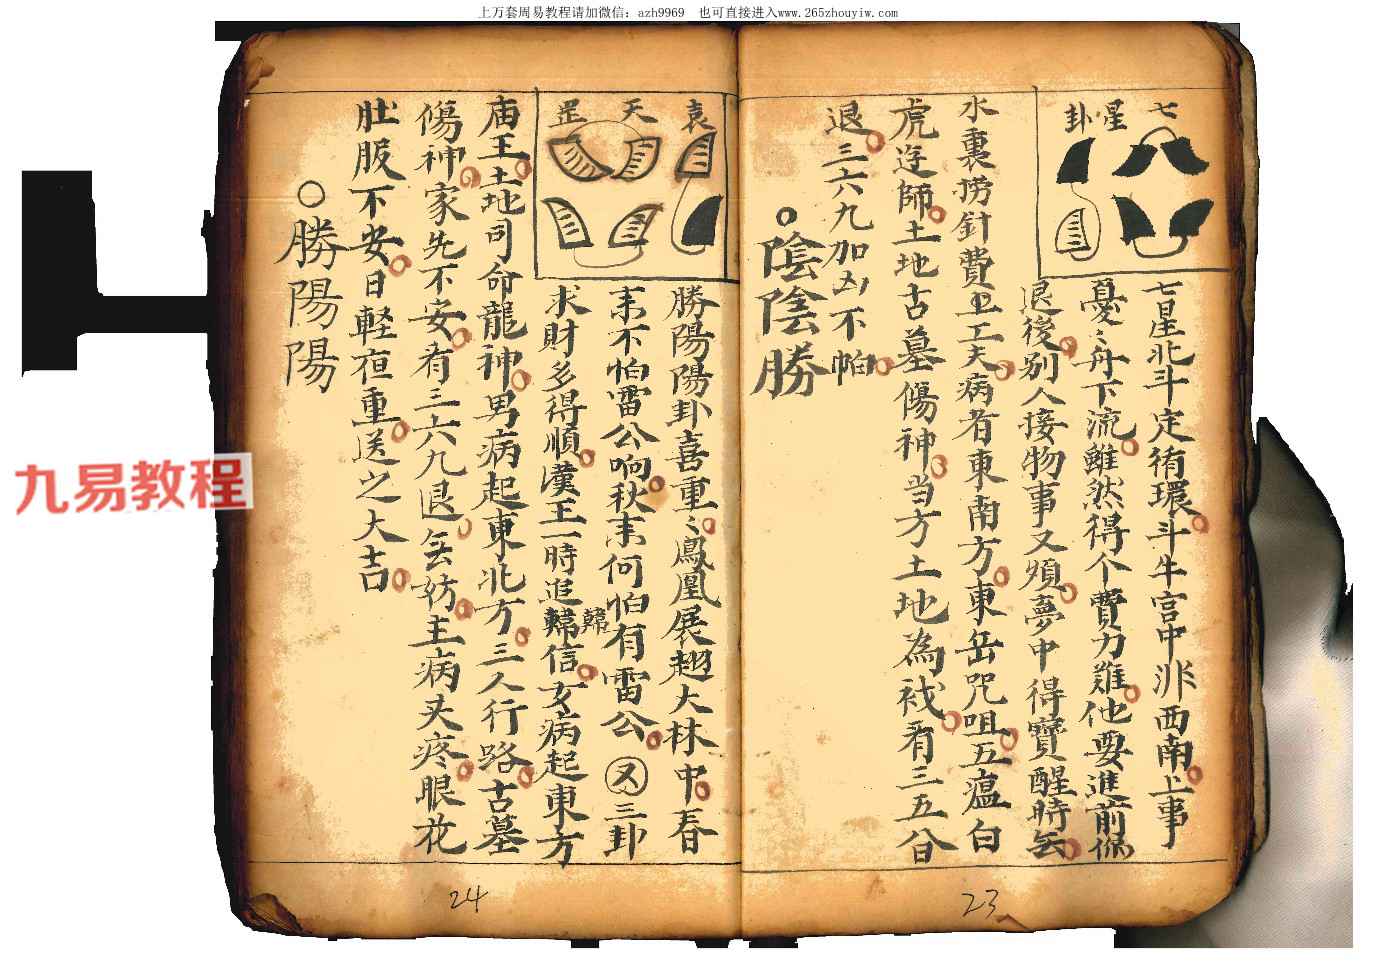 上万套周易教程请加微信：azh9969 也可直接进入www.265zhouyiw.com
七星卦
七星北斗定術環斗牛宫中非西南上事
憂〻舟下流雖然得个費力難他要進前你
退後别人接物事又煩夢中得寶醒時
水裏捞針費工夫病者東南方東岳咒咀五瘟白
虎迋師土地古墓傷神当方土地為看三五分
退三六九加凶不怕
陰陰勝
23
袁天罡
勝陽陽卦喜重〻鳳凰展翅大林中春
耒不怕雷公响秋耒何怕有雷公又三卦
求財多得順漢王一時追韓信女病起東方
韓
庙王土地司命龍神男病起東北方三人行路古墓
傷神家先不安有三六九退妨主病头疼眼花
肚服不安日軽夜重送之大吉
○勝陽陽
24
九易教程